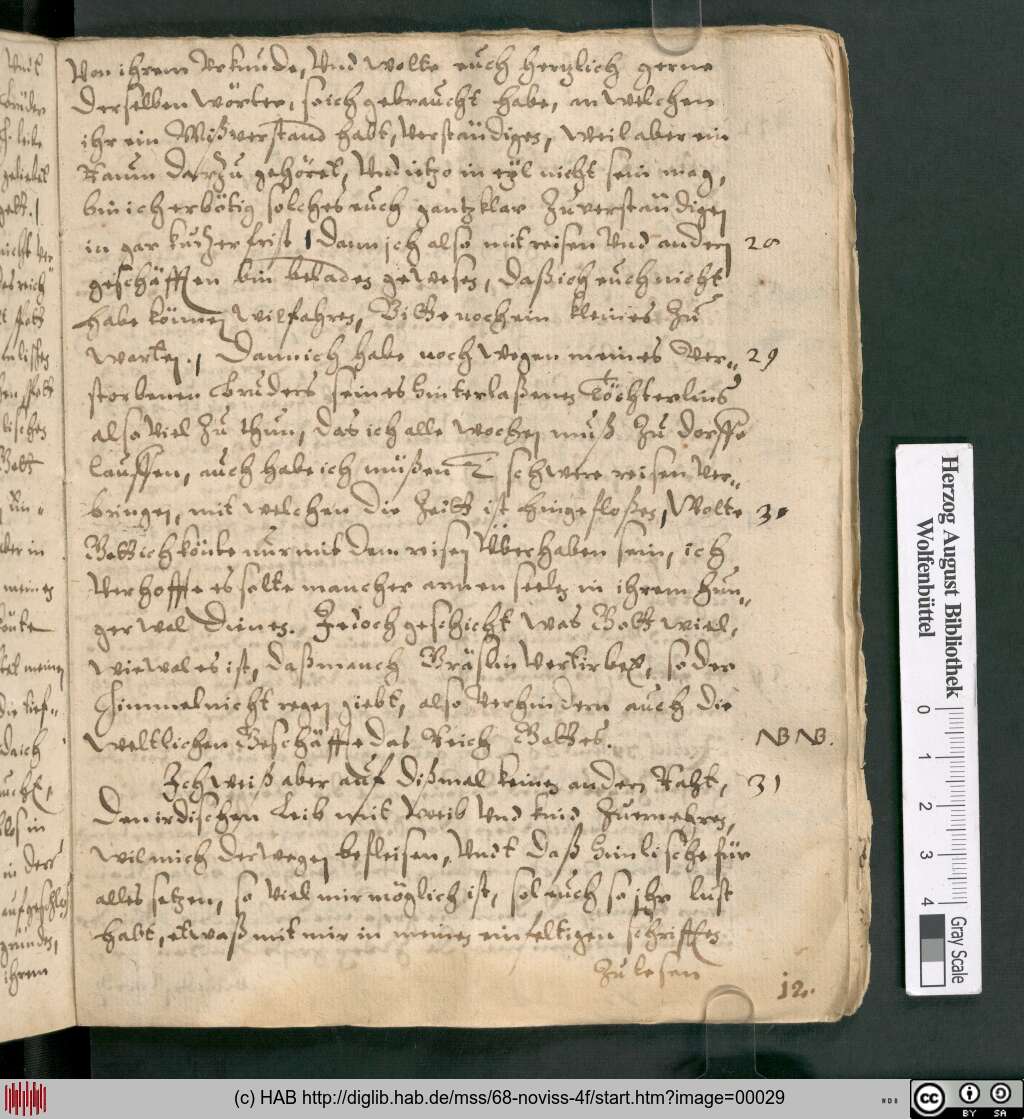 Von ihrem Urkunde, Vnd wolte euch hertzlich gerne
derselben wörter, so ich gebraucht habe, an welchen
ihr ein Mißverstand habt, verständigen, weil aber ein
Raum darzu gehöret, Vnd itzo in eyl nicht sein mag,
bin ich erbötig solches euch gantz klar Zuverständigen
in gar kurtzer frist / dann ich also mit reisen Vnd andern 28
geschäfften bin beladen gewesen, daß ich euch nicht
habe können wilfahren, Bitte noch ein kleines Zu
warten. / Dann ich habe noch wegen meines Ver- 29
storbenen Bruders seines hinterlaßenen Töchterlins
also viel Zu thun, das ich alle wochen muß Zu dorffe
lauffen, auch habe ich müßen 2 schwere reisen ver-
bringen, mit welchen die Zeitt ist hingefloßen, Wolte 30
Gott ich könte nur mit dem reisen Überhaben sein, ich
Verhoffe es solte mancher armen seelen in ihrem hun-
ger wol dienen. Jedoch geschicht was Gott wiel,
wiewol es ist, daß manch Gräslin Vertirbet, so der
Himmel nicht regen giebt, also Verhindern auch die
weltlichen Geschäffte das Reich Gottes. NB NB.
Ich weiß aber auf dißmal keinen andern Raht, 31
den irdischen Leib mit Weib Vnd kind Zuernehren,
wil mich derwegen befleisen, Vndt daß himlische für
alles setzen, so viel mir möglich ist, sol auch so ihr lust
habt, etwaß mit mir in meinen einfeltigen schrifften
Zu lesen
12.
Herzog August Bibliothek
Wolfenbüttel
0 1 2 3 4
Gray Scale
(c) HAB http://diglib.hab.de/mss/68-noviss-4f/start.htm?image=00029
cc BY SA